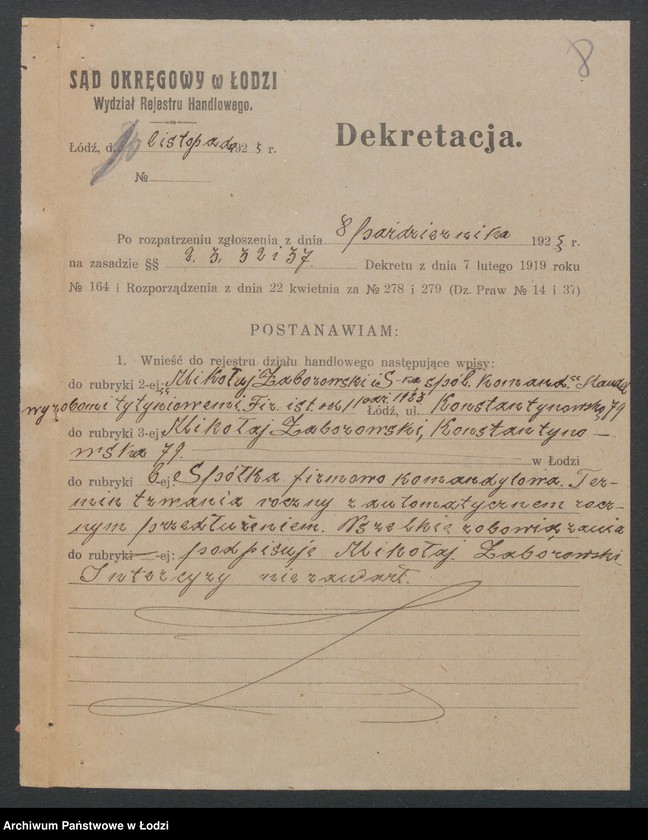 8
SĄD OKRĘGOWY w ŁODZI
Wydział Rejestru Handlowego.
Dekretacja.
Łódź, d. listopada 192 r.
№
Po rozpatrzeniu zgłoszenia z dnia 8 października 192 r.
na zasadzie §§ 2. 3. 32 i 37. Dekretu z dnia 7 lutego 1919 roku
№ 164 i Rozporządzenia z dnia 22 kwietnia za № 278 i 279 (Dz. Praw № 14 i 37)
POSTANAWIAM:
1. Wnieść do rejestru działu handlowego następujące wpisy:
do rubryki 2-ej: „Mikołaj Zaborowski i S-ka spół. komand." Handel
wyrobami tytyniowemi. Fir. ist. od 1 paź. Łódź, ul. Konstantynowska 79
do rubryki 3-ej: Mikołaj Zaborowski, Konstantyno-
wska 79. w Łodzi
do rubryki 6-ej: Spółka firmowo komandytowa. Ter-
min trwania roczny z automatycznem rocz-
nym przedłużeniem. Wszelkie zobowiązania
do rubryki -ej: podpisuje Mikołaj Zaborowski.
Intercyzy nie zawarł.
Archiwum Państwowe w Łodzi